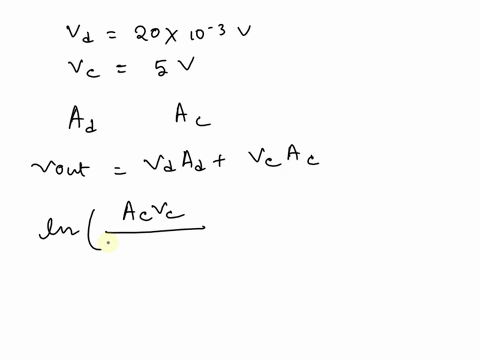 Vd = 20 × 10⁻³ V
Vc = 5 V
Ad Ac
Vout = VdAd + VcAc
ln ( AcVc